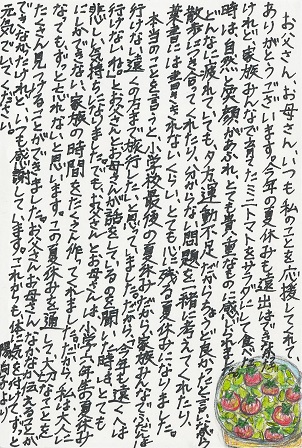 お父さん、お母さん、いつも私のことを応援してくれて
ありがとうございます。今年の夏休みも遠出はできなかった
けれど、家族みんなで育てたミニトマトをサラダにして食べた
時は、自然と笑顔があふれ、とても貴重なものに感じられました。
どんなに疲れていても、夕方「運動不足だからちょうど良かった」と言いながら
散歩に付き合ってくれたり、分からない問題を一緒に考えてくれたり、
葉書には書ききれないくらい、とても心に残る夏休みになりました。
本当のことを言うと、小学校最後の夏休みだから、家族みんなで、どこか
遠くの方まで旅行したいと思っていました。だから、「今年も遠くへは
行けないね。」とお父さんとお母さんが話をしているのを聞いた時は、とても
悲しい気持ちになりました。でも、お父さんとお母さんは、小学六年生の夏休み
にしかできない、家族の時間をたくさん作ってくれました。だから、私は大人に
なってもずっと忘れないと思います。この夏休みを通して、大切なことを
たくさん見つけることができました。お父さん、お母さん、なかなか伝えることが
できなかったけれど、いつも感謝しています。これからも、体に気を付けて、ずっと
元気でいてください。
より